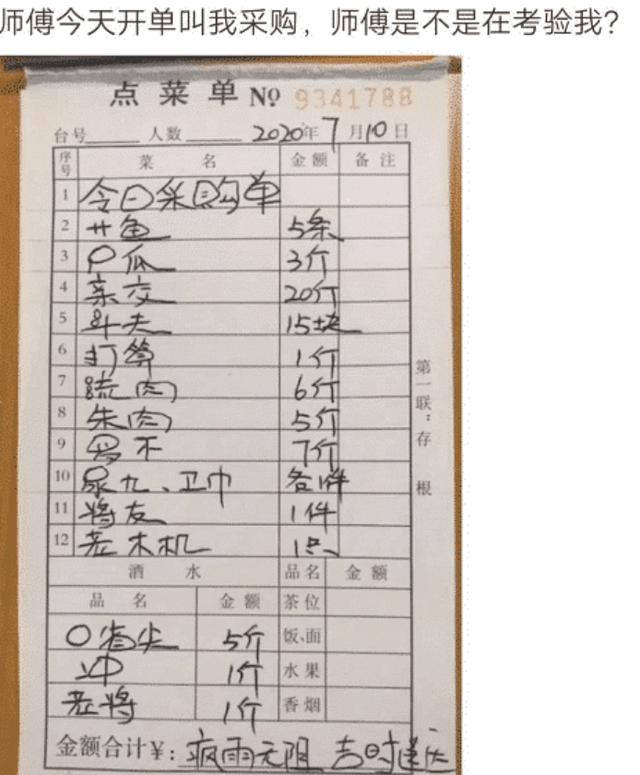 师傅今天开单叫我采购，师傅是不是在考验我？
点菜单 № 9341788
台号 人数 2020年7月10日
序号 菜名 金额 备注
1 令日采购单
2 廿鱼 5条
3 口瓜 3斤
4 亲交 20斤
5 斗夫 15块
6 打算 1斤
7 肉 6斤
8 朱肉 5斤
9 不 7斤
10 尿九、卫巾 各1件
11 将友 1件
12 老木机 1只
酒水 品名 金额
品名 金额 茶位
O省尖 5斤 饭、面
冲 1斤 水果
老将 1斤 香烟
金额合计¥：疯雨无阻 吉时送达
第一联：存根